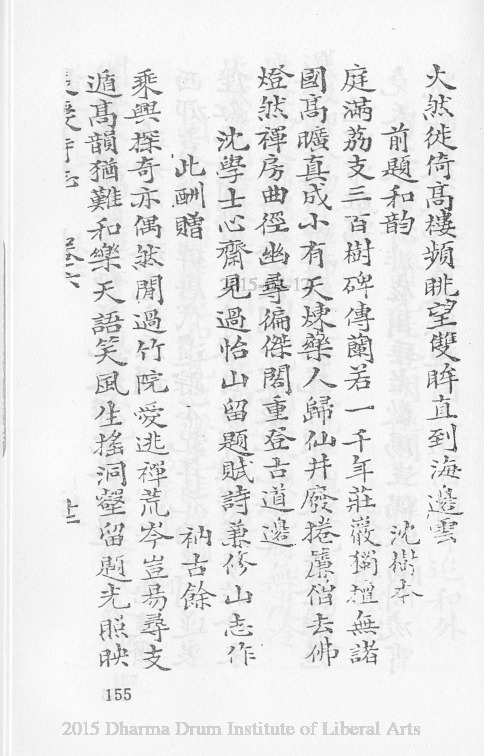 大然徒倚高樓頻眺望雙眸直到海邊雲
前題和韵 沈樹本
庭滿荔支三百樹碑傳蘭若一千年莊嚴獨擅無諸
國高曠真成小有天煉藥人歸仙井廢捲簾僧去佛
燈然禪房曲徑幽尋徧傑閣重登古道邊
沈學士心齋見過怡山留題賦詩兼修山志作
此酬贈 衲古餘
乘興探奇亦偶然閒過竹院愛逃禪荒岑豈易尋支
遁高韻猶難和樂天語笑風生搖洞壑留題光照映
卷六 十一
155
2015 Dharma Drum Institute of Liberal Arts